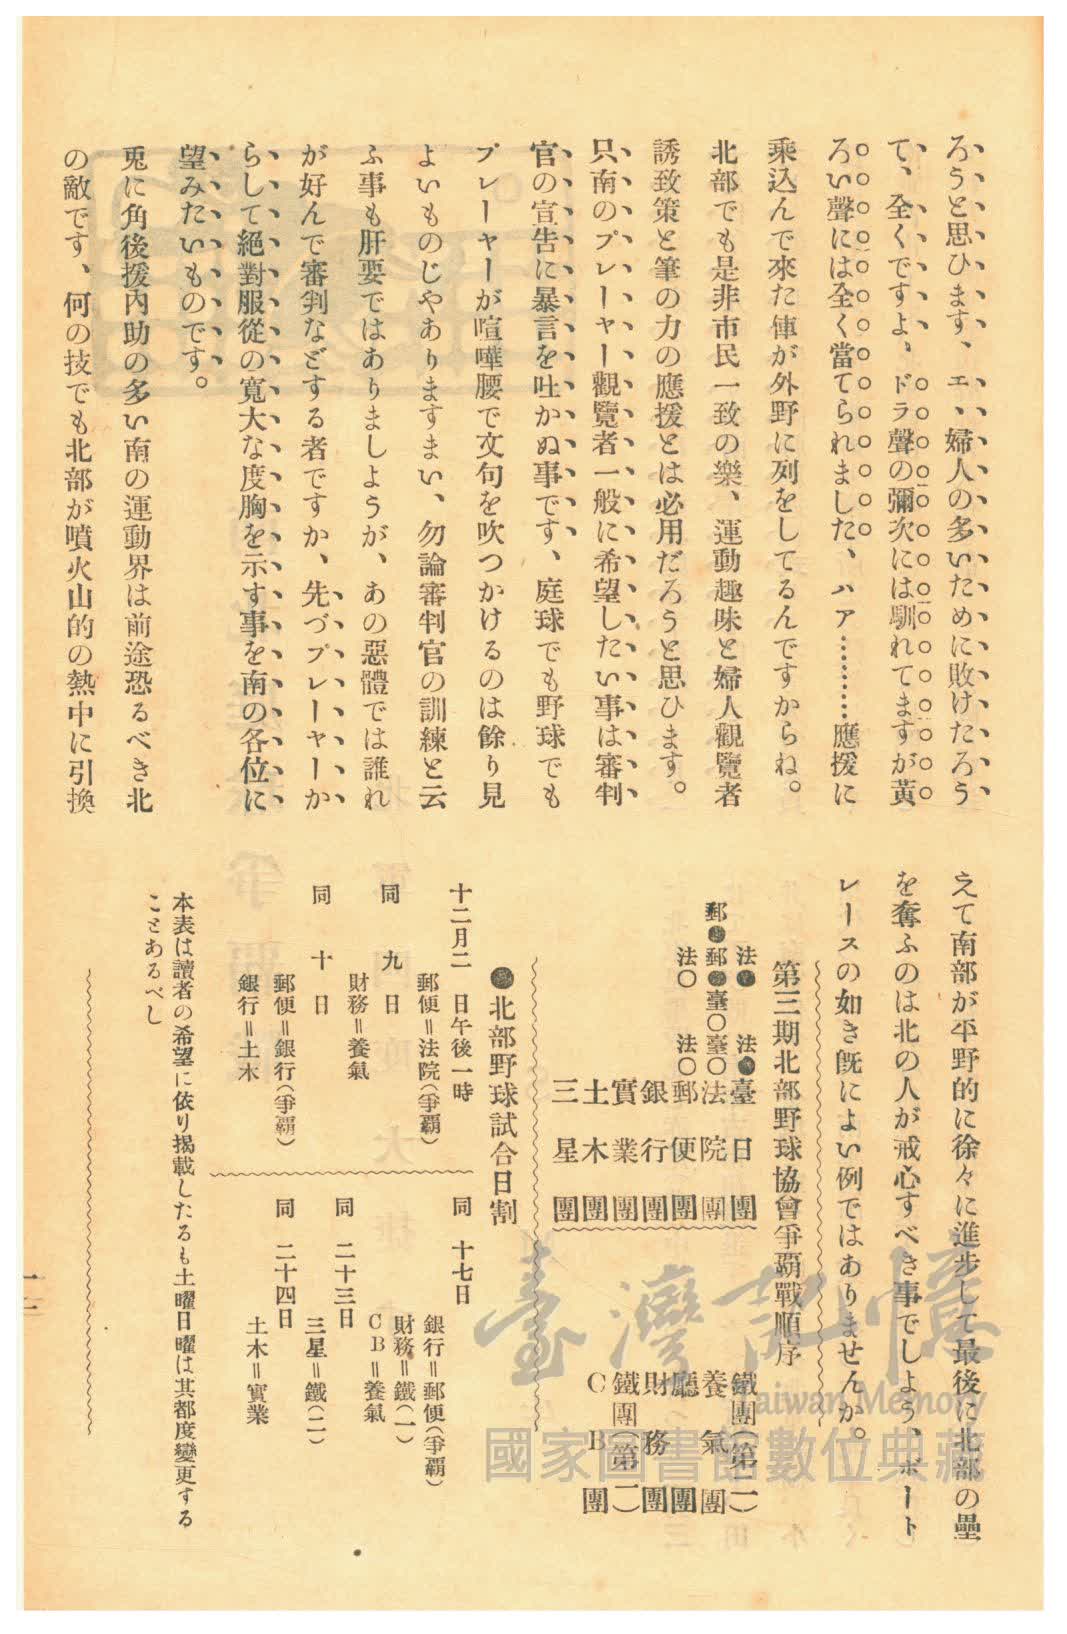 ろうと思ひます、エ、婦人の多いために敗けたろう
て、全くですよ、ドラ聲の彌次には馴れてますが黃
ろい聲には全く當てられました、ハア………應援に
乘込んで來た俥が外野に列をしてるんですからね。
北部でも是非市民一致の樂、運動趣味と婦人觀覽者
誘致策と筆の力の應援とは必用だろうと思ひます。
只南のプレーヤー觀覽者一般に希望したい事は審判
官の宣告に暴言を吐かぬ事です、庭球でも野球でも
プレーヤーが喧嘩腰で文句を吹つかけるのは餘り見
よいものじやありますまい、勿論審判官の訓練と云
ふ事も肝要ではありましようが、あの惡體では誰れ
が好んで審判などする者ですか、先づプレーヤーか
らして絕對服從の寬大な度胸を示す事を南の各位に
望みたいものです。
兎に角後援內助の多い南の運動界は前途恐るべき北
の敵です、何の技でも北部が噴火山的の熱中に引換
えて南部が平野的に徐々に進步して最後に北部の壘
を奪ふのは北の人が戒心すべき事でしよう、ボート
レースの如き旣によい例ではありませんか。
第三期北部野球協會爭覇戰順序
法● 法●臺日團
郵●郵●臺〇臺〇法院團
法〇 法〇郵便團
銀行團
實業團
土木團
三星團
鐵團(第二)
養氣團
廳團
財務團
鐵團(第一)
CB團
●北部野球試合日割
十二月二日午後一時
郵便=法院(爭覇)
同九日
財務=養氣
同十日
郵便=銀行(爭覇)
銀行=土木
同十七日
銀行=郵便(爭覇)
財務=鐵(一)
CB=養氣
同二十三日
三星=鐵(二)
同二十四日
土木=實業
本表は讀者の希望に依り揭載したるも土曜日曜は其都度變更する
ことあるべし
臺灣記憶
Taiwan Memory
國家圖書館數位典藏